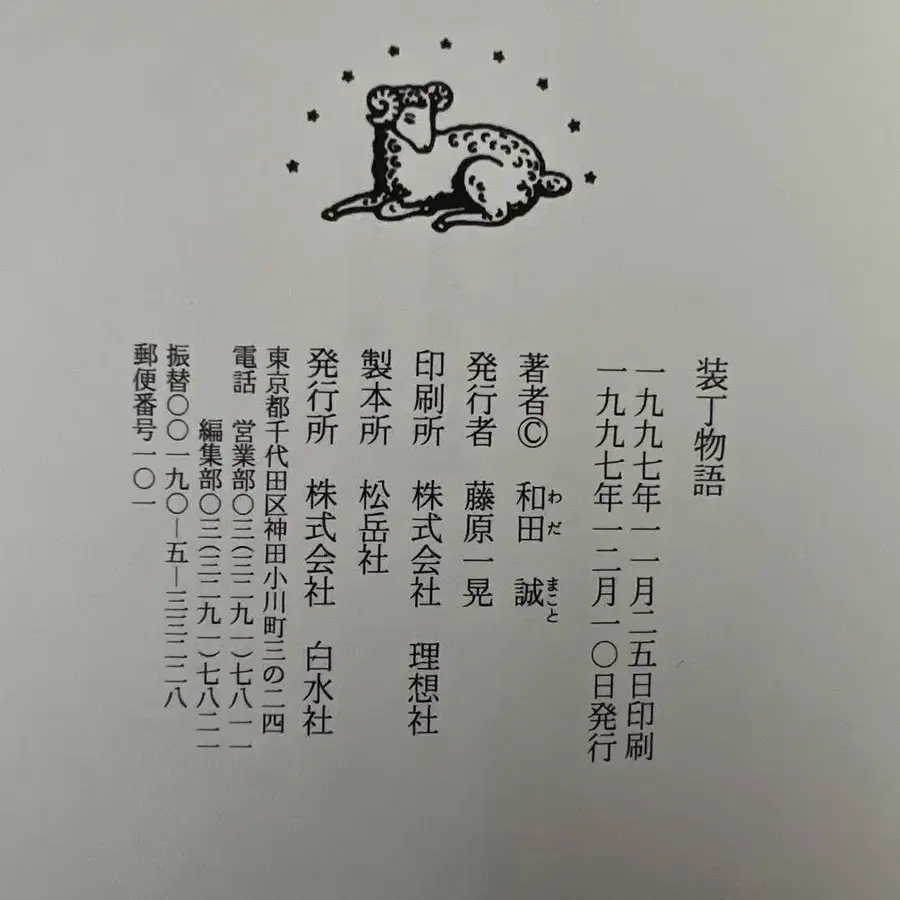 装丁物語
一九九七年一一月二五日印刷
一九九七年一二月一〇日発行
著者© 和田 誠
わだ まこと
発行者 藤原一晃
印刷所 株式会社 理想社
製本所 松岳社
発行所 株式会社 白水社
東京都千代田区神田小川町三の二四
電話 営業部〇三(三二九一)七八一一
編集部〇三(三二九一)七八二一
振替〇〇一九〇―五―三三二二八
郵便番号一〇一